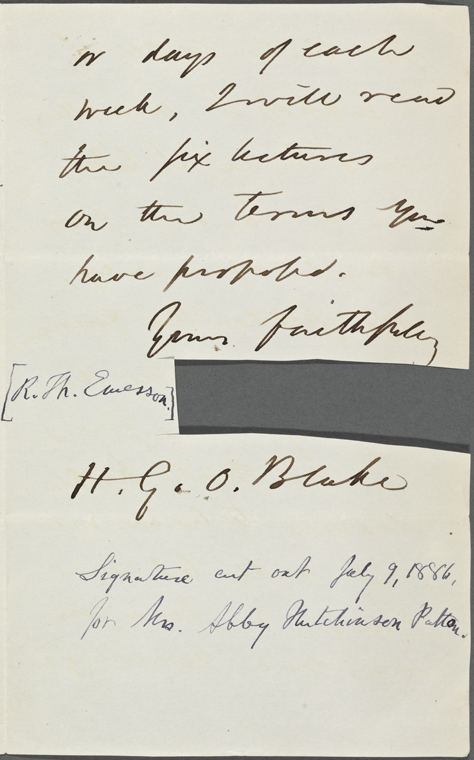 or days of each
week, I will read
the six lectures
on the terms you
have proposed.
Yours faithfully
[R. Th. Emerson.]
H. G. O. Blake
Signature cut out July 9, 1886,
for Mrs. Abby Hutchinson Patton.